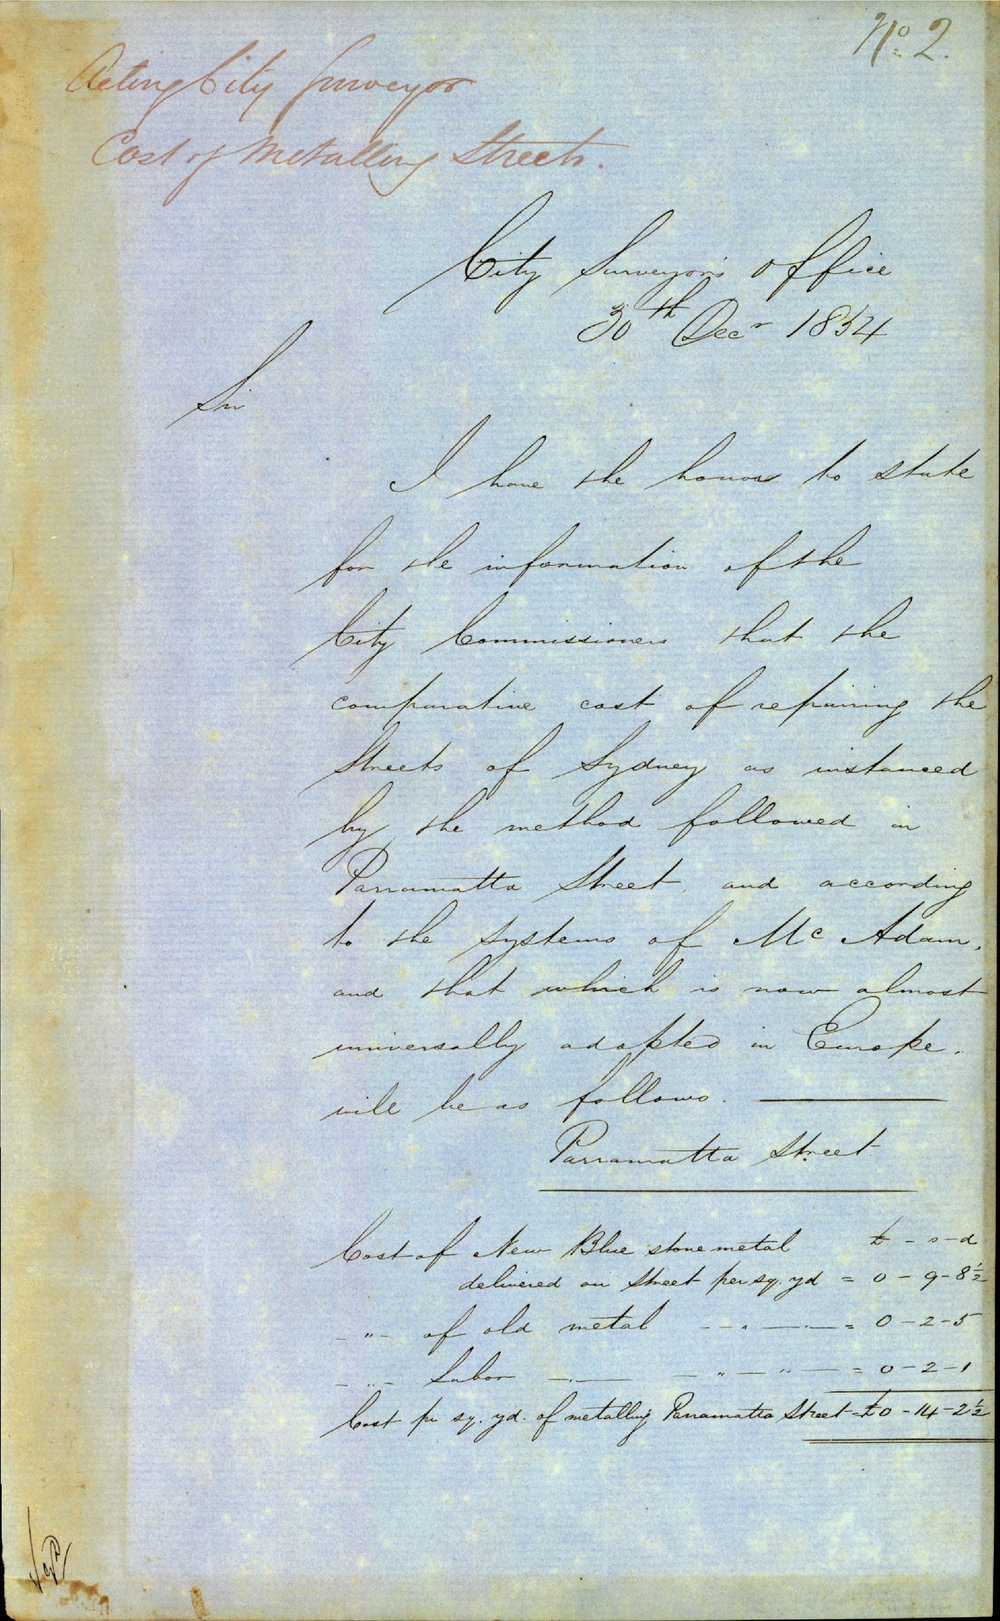 No. 2.
Acting City Surveyor
Cost of Metalling Streets.
City Surveyor's Office
30th Decr 1854
Sir
I have the honor to state
for the information of the
City Commissioners that the
comparative cost of repairing the
Streets of Sydney as instanced
by the method followed in
Parramatta Street, and according
to the systems of Mc Adam,
and that which is now almost
universally adopted in Europe,
will be as follows.
Parramatta Street
Cost of New Blue stone metal £ - s - d
delivered on Street per sq. yd = 0 - 9 - 8½
- " - of old metal - - " - - " - = 0 - 2 - 5
- " - Labor - " - - " - " - = 0 - 2 - 1
Cost pr sq. yd. of metalling Parramatta Street = £0 - 14 - 2½